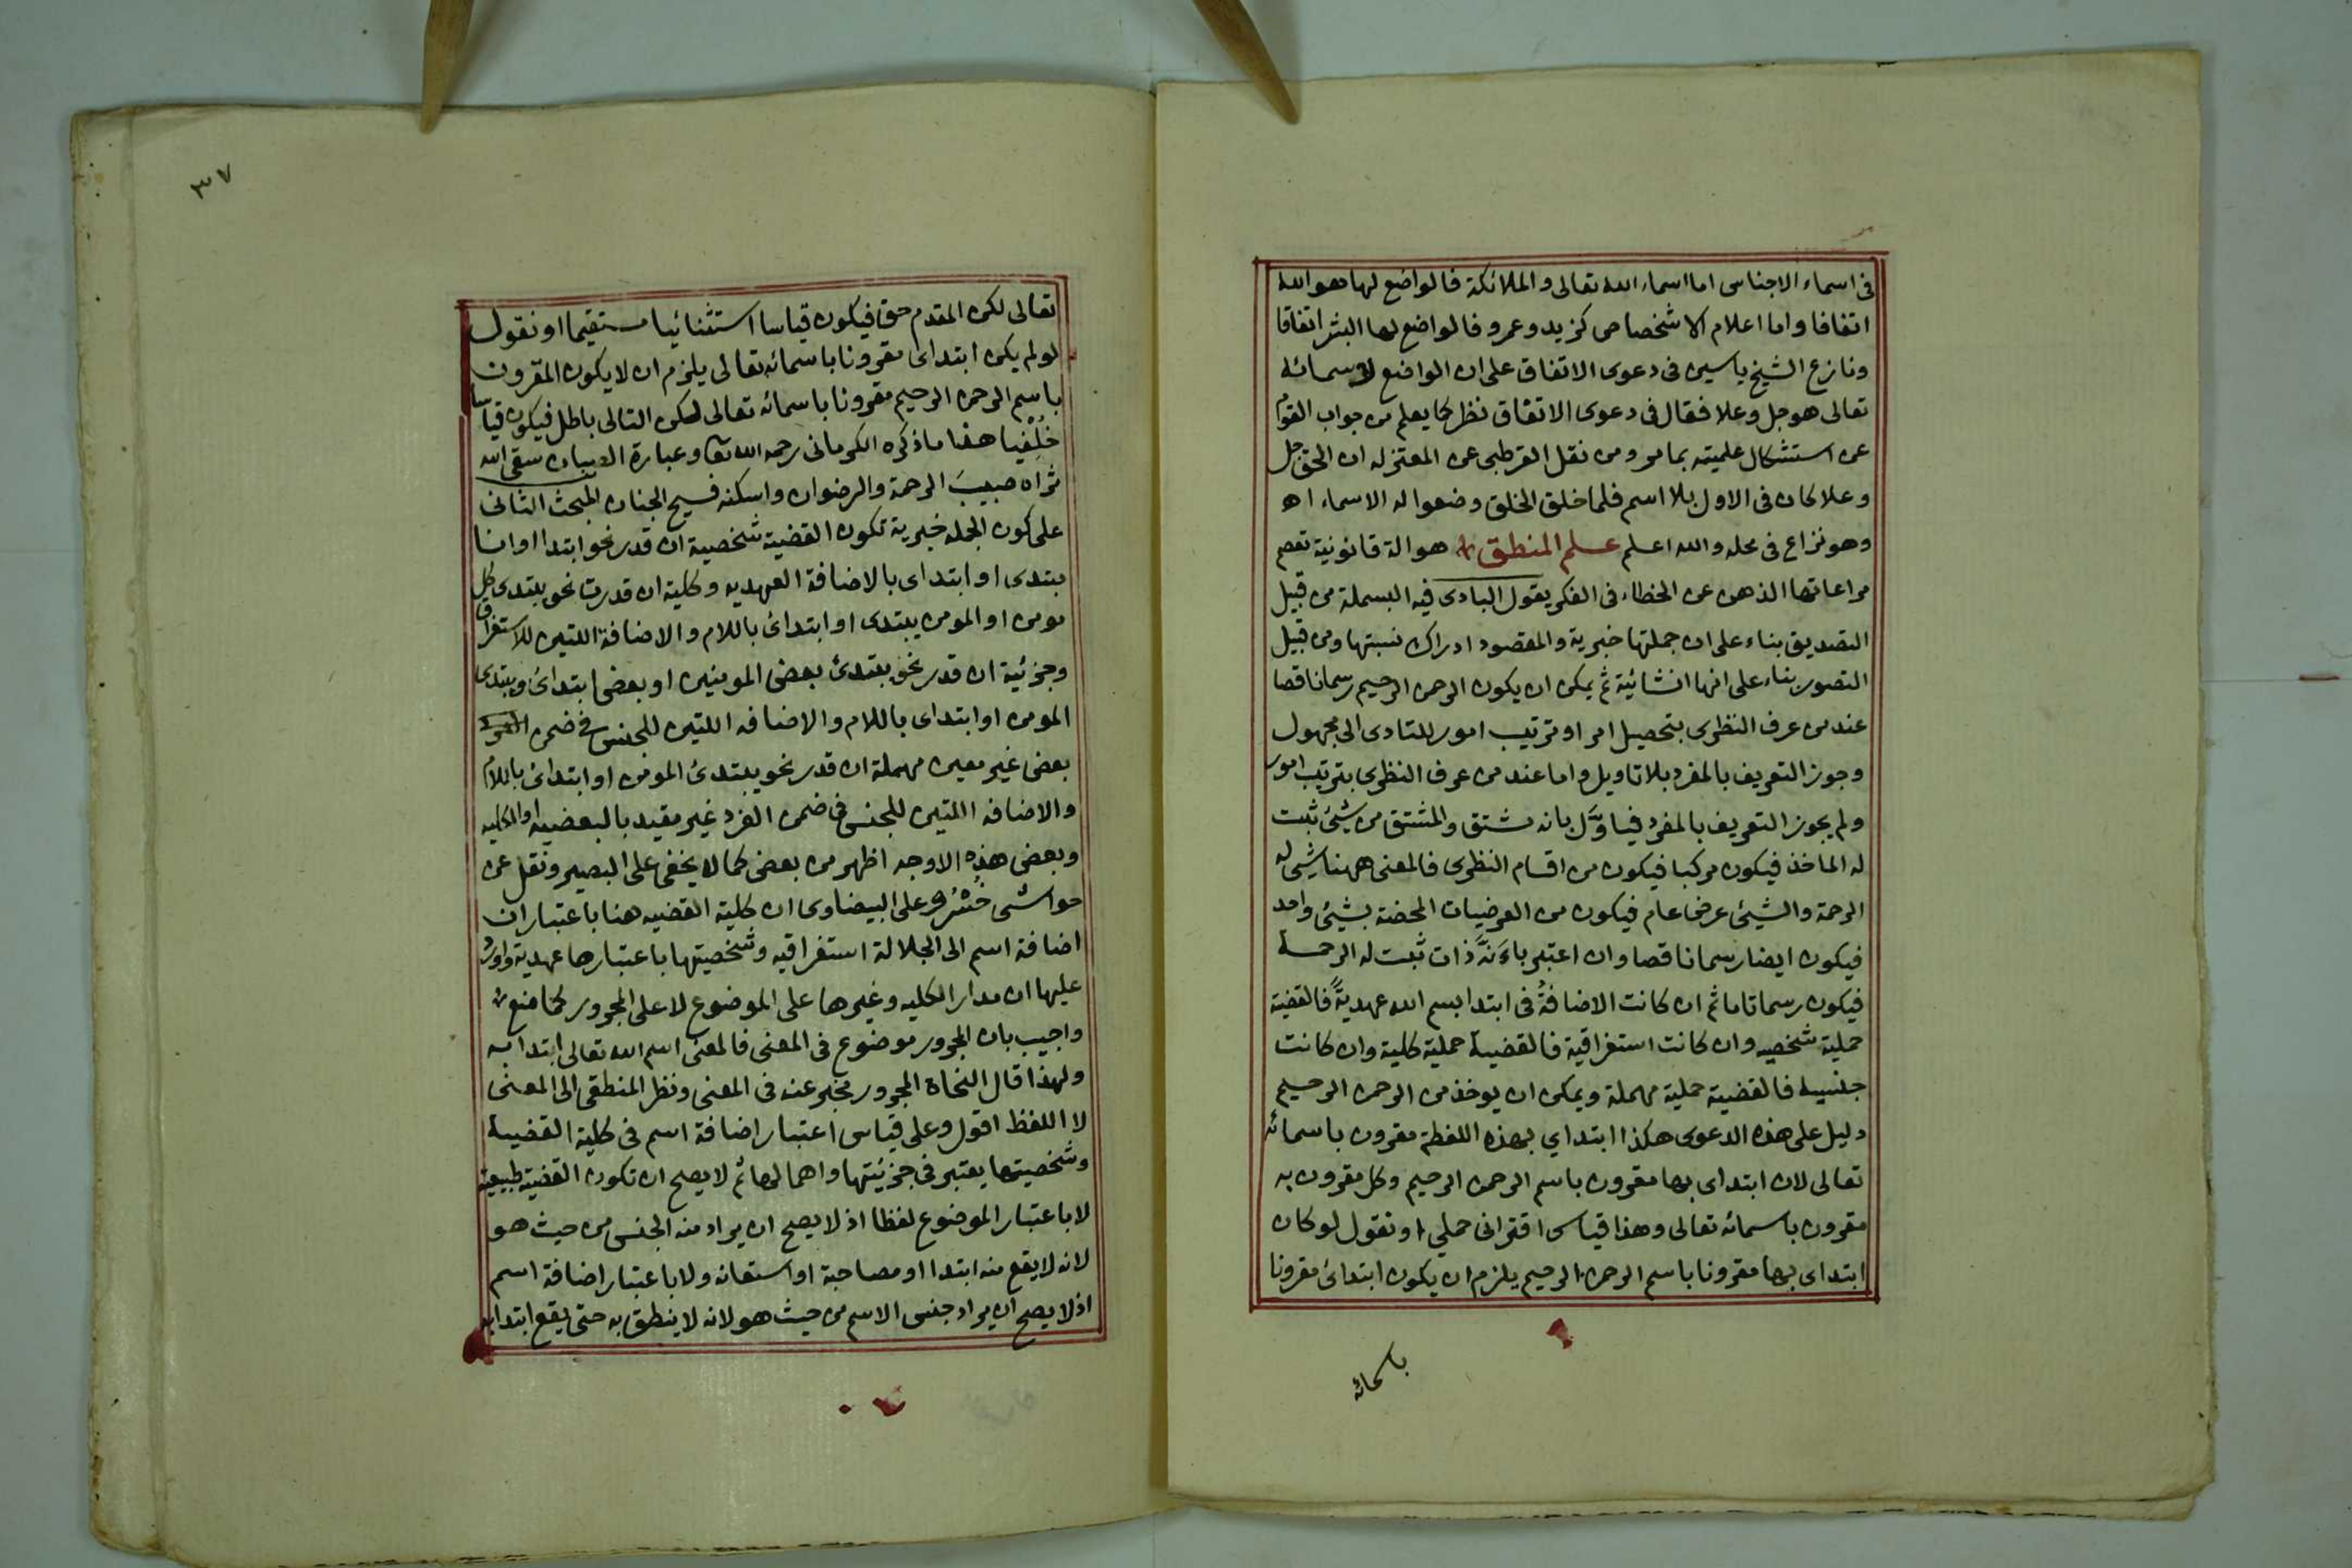 فى اسماء الاجناس اما اسماء الله تعالى والملائكة فالواضع لها هو الله
اتفاقا واما اعلام الاشخاص كزيد وعمرو فالواضع لها البشر اتفاقا
ونازع الشيخ ياسين فى دعوى الاتفاق على ان الواضع لاسمائه
تعالى هو جل وعلا فقال فى دعوى الاتفاق نظر كما يعلم من جواب القوم
عن استشكال علميته بما مر ومن نقل القرطبى عن المعتزله ان الحق جل
وعلا كان فى الاول بلا اسم فلما خلق الخلق وضعوا له الاسماء اه
وهو نزاع فى محله والله اعلم علم المنطق هو الة قانونية تعصم
مراعاتها الذهن عن الخطاء فى الفكر يقول البادى فيه البسملة من قبيل
التصديق بناء على ان جملتها خبرية والمقصود ادراك نسبتها ومن قبيل
التصور بناء على انها انشائية ثم يمكن ان يكون الرحمن الرحيم رسما ناقصا
عند من عرف النظرى بتحصيل امر او ترتيب امور للتادى الى مجهول
وجوز التعريف بالمفرد بلا تاويل واما عند من عرف النظرى بترتيب امور
ولم يجوز التعريف بالمفرد فياوّل بانه مشتق والمشتق من شيئ ثبت
له الماخذ فيكون مركبا فيكون من اقسام النظرى فالمعنى ههنا شيئ له
الرحمة والشيئ عرض عام فيكون من العرضيات المحضة بشيئ واحد
فيكون ايضا رسما ناقصا وان اعتبر باءنّه ذات ثبت له الرحمة
فيكون رسما تاما ثم ان كانت الاضافةُ فى ابتدا بسم الله عهديةً فالقضية
حملية شخصيه وان كانت استغراقية فالقضية حملية كلية وان كانت
جنسية فالقضية حملية مهملة ويمكن ان يوخذ من الرحمن الرحيم
دليل على هذه الدعوى هكذا ابتداي بهذه اللفظة مقرون باسمائه
تعالى لان ابتداى بها مقرون باسم الرحمن الرحيم وكل مقرون به
مقرون باسمائه تعالى وهذا قياس اقترانى حملي او نقول لو كان
ابتداى بها مقرونا باسم الرحمن الرحيم يلزم ان يكون ابتدائ مقرونا
باسمائه
٣٧
تعالى لكن المقدم حق فيكون قياسا استثنائيا مستقيما او نقول
لو لم يكن ابتداى مقرونا باسمائه تعالى يلزم ان لا يكون المقرون
باسم الرحمن الرحيم مقرونا باسمائه تعالى لكن التالى باطل فيكون قياسا
خُلْفيا هذا ما ذكره الكرمانى رحمه الله تعا وعبارة سقى الله
ثراه صبيبَ الرحمة والرضوان واسكنه فسيح الجنان المبحث الثانى
على كون الجمله خبرية تكون القضية شخصية ان قدر نحو ابتدا او انا
مبتدى او ابتداى بالاضافة العهديه وكلية ان قدرت نحو يبتدى كل
مومن او المومن يبتدى او ابتدائ باللام والاضافة اللتين للاستغراق
وجزئية ان قدر نحو يبتدئ بعض المومنين او بعض ابتدائ ويبتدى
المومن او ابتداى باللام والاضافه اللتين للجنس فى ضمن
بعض غير معين مهملة ان قدر نحو يبتدئ المومن او ابتدائ باللام
والاضافه اللتين للجنس فى ضمن الفرد غير مقيد بالبعضيه او الكليه
وبعض هذه الاوجه اظهر من بعض كما لا يخفى على البصير ونقل عن
حواشى خُسْرُو على البيضاوى ان كلية القضيه هنا باعتبار ان
اضافة اسم الى الجلالة استغراقيه وشخصيتها باعتبارها عهدية واورد
عليها ان مدار الكليه وغيرها على الموضوع لا على المجرور
واجيب بان المجرور موضوع فى المعنى فالمعنى اسم الله تعالى ابتدا به
ولهذا قال النحاة المجرور مخبر عنه فى المعنى ونظر المنطقى الى المعنى
لا اللفظ اقول وعلى قياس اعتبار اضافة اسم فى كلية القضية
وشخصيتها يعتبر فى جزئيتها واهمالها ثم لا يصح ان تكون القضية طبيعية
لا باعتبار الموضوع لفظا اذ لا يصح ان يراد منه الجنس من حيث هو
لانه لا يقع منه ابتدا او مصاحبة او استعانه ولا باعتبار اضافة اسم
اذ لا يصح ان يراد جنس الاسم من حيث هو لانه لا ينطق به حتى يقع ابتدا به